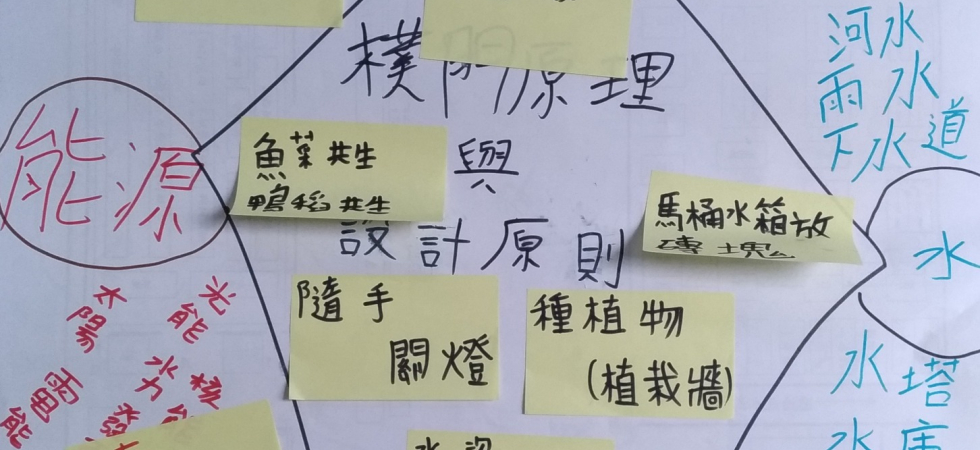 樸門原理
與
設計原則
能源
魚菜共生
鴨稻共生
馬桶水箱放
磚塊
隨手
關燈
種植物
(植栽牆)
河水
雨水
下水道
水
水塔
水庫
太陽
光能
水力
電能